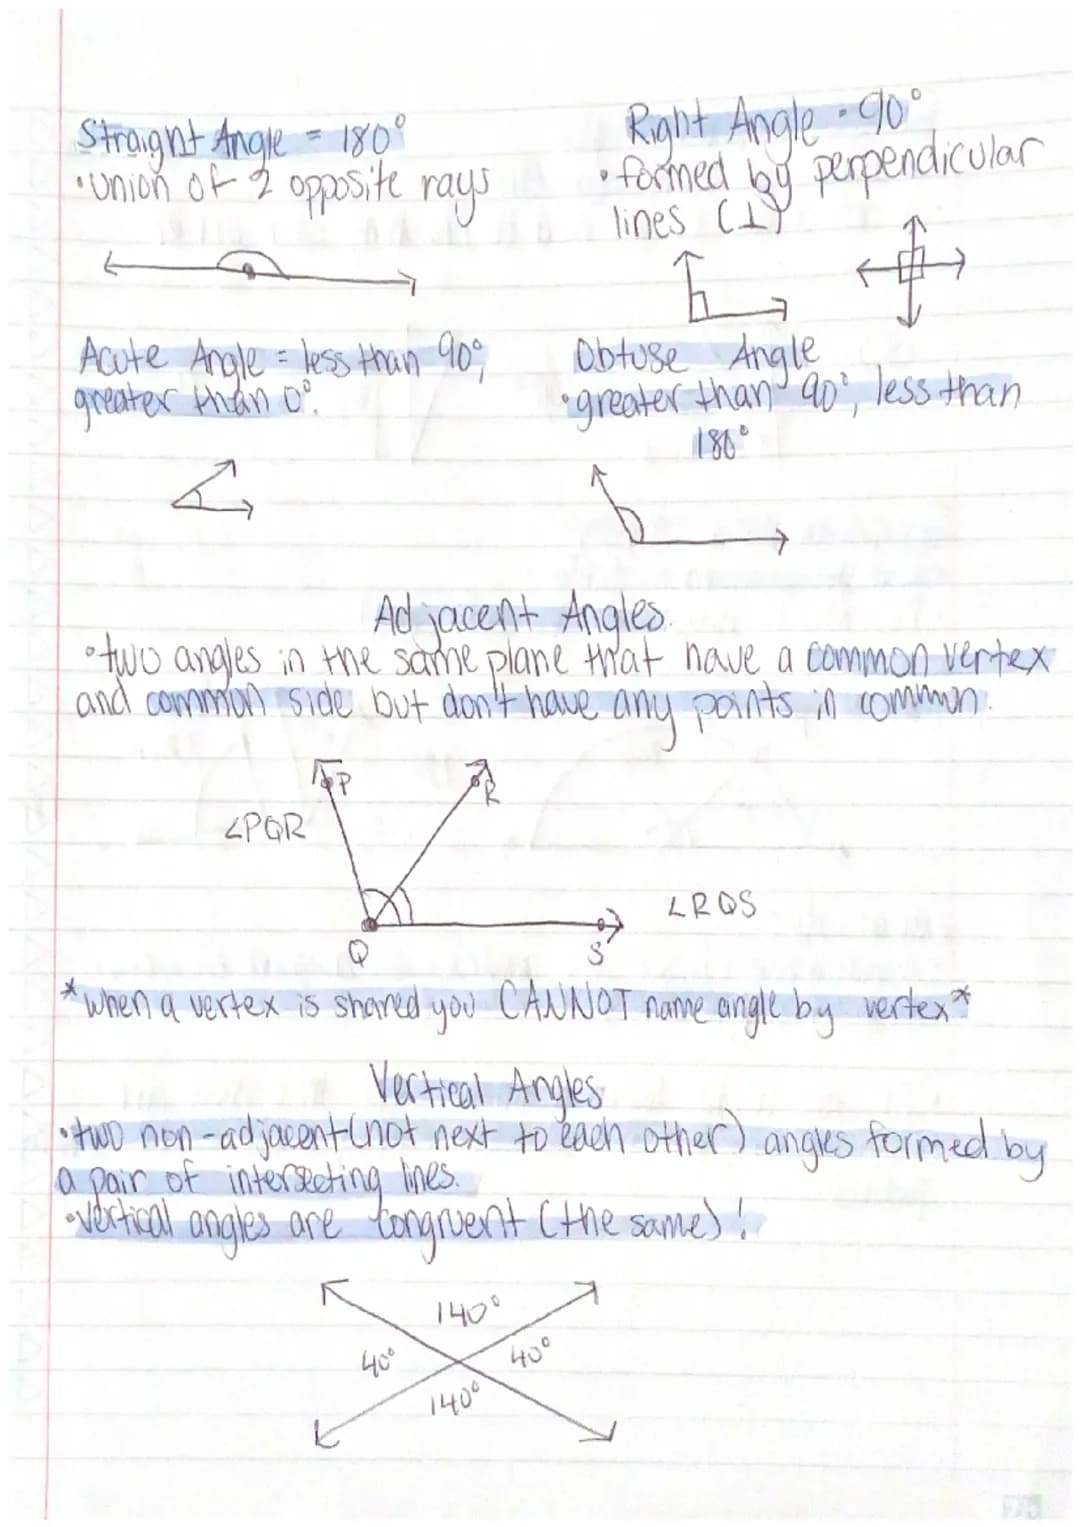 Straight Angle = 180°
• union of 2 opposite rays
Right Angle • 90°
• formed by perpendicular
lines (⊥)
Acute Angle = less than 90°,
greater than 0°.
Obtuse Angle
• greater than 90°, less than
180°
Adjacent Angles.
• two angles in the same plane that have a common vertex
and common side but don't have any points in common.
P
R
∠PQR
∠RQS
Q
S
*when a vertex is shared you CANNOT name angle by vertex*
Vertical Angles
• two non-adjacent (not next to each other) angles formed by
a pair of intersecting lines.
• Vertical angles are congruent (the same)!
140°
40°
40°
140°